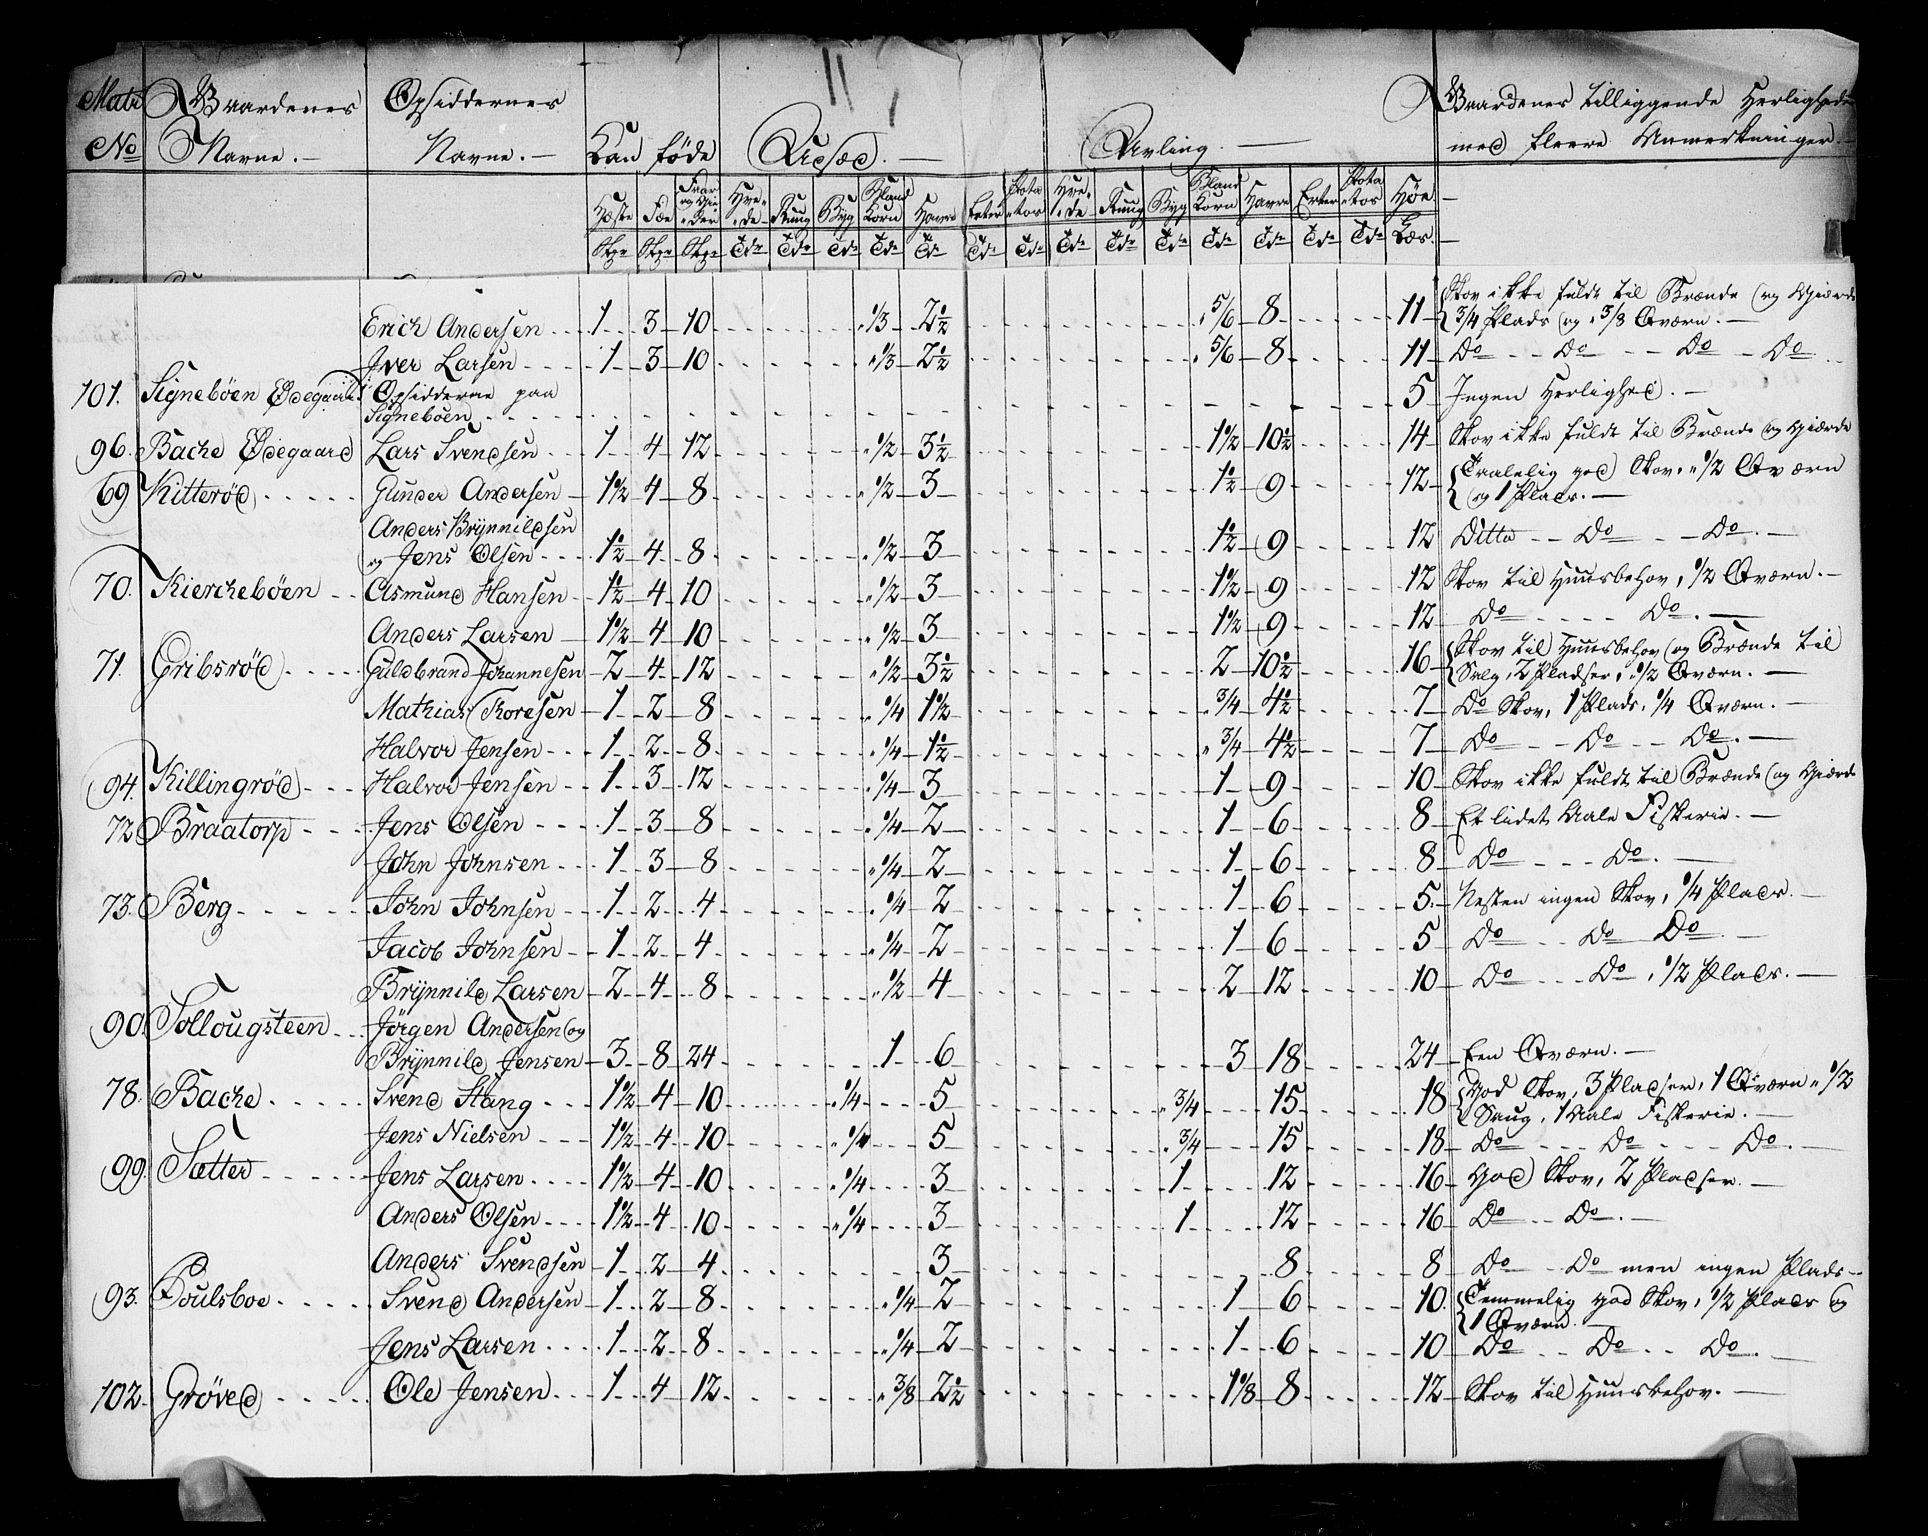 11
Matr No
Gaardenes Navne.
Opsiddernes Navne.
Kan føde
Udsæd.
Avling.
Gaardenes tilliggende Herligheder
med fleere Anmerkninger.
Hæste Fæe Faar og Gie der Hve de Ruug Byg Bland Korn Havre Erter Pota tos Hve de Ruug Byg Bland Korn Havre Erter Pota tos Høe
Stkr Stkr Stkr Tdr Tdr Tdr Tdr Tdr Tdr Tdr Tdr Tdr Tdr Tdr Tdr Tdr Tdr Læs.
Erich Andersen 1 3 10 " 1/3 2 1/2 " 5/6 8 11 Skov ikke fuldt til Brænde og Gierde
3/4 Plads og " 3/8 Qværn.
Iver Larsen 1 3 10 " 1/3 2 1/2 " 5/6 8 11 Do Do Do Do
101. Signebøen Ødegaard Opsidderne paa
Signebøen 5 Ingen Herlighed.
96. Bache Ødegaard Lars Svendsen 1 4 12 " 1/2 3 1/2 1 1/2 10 1/2 14 Skov ikke fuldt til Brænde og Gierde
69 Kitterød Gunder Andersen 1 1/2 4 8 " 1/2 3 1 1/2 9 12 Taalelig god Skov, " 1/2 Qværn
og 1 Plads.
Anders Brynnildsen
og Jens Olsen 1 1/2 4 8 " 1/2 3 1 1/2 9 12 Ditto Do Do.
70. Kierchebøen Asmund Hansen 1 1/2 4 10 " 1/2 3 1 1/2 9 12 Skov til Huusbehov, 1/2 Qværn.
Anders Larsen 1 1/2 4 10 " 1/2 3 1 1/2 9 12 Do Do.
71. Gribsrød Guldbrand Johannesen 2 4 12 " 1/2 3 1/2 2 10 1/2 16 Skov til Huusbehov og Brænde til
Salg, 2 Pladser, " 1/2 Qværn.
Mathias Toresen 1 2 8 " 1/4 1 1/2 " 3/4 4 1/2 7 Do Skov, 1 Plads, 1/4 Qværn.
Halvor Jensen 1 2 8 " 1/4 1 1/2 " 3/4 4 1/2 7 Do Do Do.
94. Killingrød Halvor Jensen 1 3 12 " 1/4 3 1 9 10 Skov ikke fuldt til Brænde og Gierde
72 Braatorp Jens Olsen 1 3 8 " 1/4 2 1 6 8 Et lidet Aale Fiskerie.
John Johnsen 1 3 8 " 1/4 2 1 6 8 Do Do.
73. Berg John Johnsen 1 2 4 " 1/4 2 1 6 5. Nesten ingen Skov, 1/4 Plads.
Jacob Johnsen 1 2 4 " 1/4 2 1 6 5 Do Do Do
Brynnild Larsen 2 4 8 " 1/2 4 2 12 10 Do Do, 1/2 Plads.
90. Sollougsteen Jørgen Andersen og
Brynnild Jensen 3 8 24 1 6 3 18 24 Een Qværn.
78. Bache Svend Stang 1 1/2 4 10 " 1/4 5 " 3/4 15 18 God Skov, 3 Pladser, 1 Qværn " 1/2
Saug, 1 Aale Fiskerie.
Jens Nielsen 1 1/2 4 10 " 1/4 5 " 3/4 15 18 Do Do Do.
99. Sætter Jens Larsen 1 1/2 4 10 " 1/4 3 1 12 16 God Skov, 2 Pladser.
Anders Olsen 1 1/2 4 10 " 1/4 3 1 12 16 Do Do.
Anders Svendsen 1 2 4 3 8 8 Do Do men ingen Plads
93. Poulsboe Svend Andersen 1 2 8 " 1/4 2 1 6 10 Temmelig god Skov, 1/2 Plads og
1 Qværn.
Jens Larsen 1 2 8 " 1/4 2 1 6 10 Do Do Do.
102. Grøved Ole Jensen 1 4 12 " 3/8 2 1/2 1 1/8 8 12 Skov til Huusbehov.